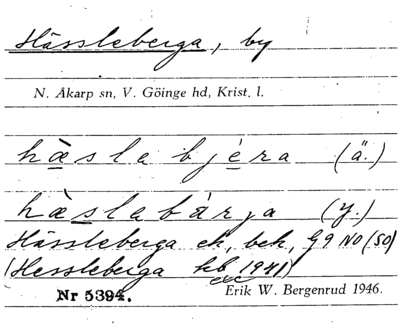 Hässleberga, by
N. Åkarp sn, V. Göinge hd, Krist. l.
hæ̀sla bjéra (ä.)
hæ̀slabárja (y.)
Hässleberga ek, bek, G9 NO (SO)
(Hessleberga kb 1941)
Nr 5394.
Erik W. Bergenrud 1946.